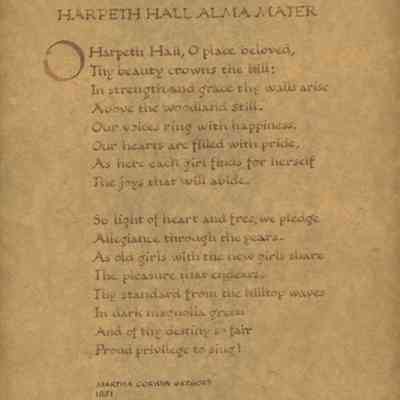 HARPETH HALL ALMA MATER
O Harpeth Hall, O place beloved,
Thy beauty crowns the hill;
In strength and grace thy walls arise
Above the woodland still.
Our voices ring with happiness,
Our hearts are filled with pride,
As here each girl finds for herself
The joys that will abide.
So light of heart and free, we pledge
Allegiance through the years.
As old girls with the new girls share
The pleasure that endears.
Thy standard from the hilltop waves
In dark magnolia green
And of thy destiny so fair
Proud privilege to sing!
MARTHA GREGORY
1951